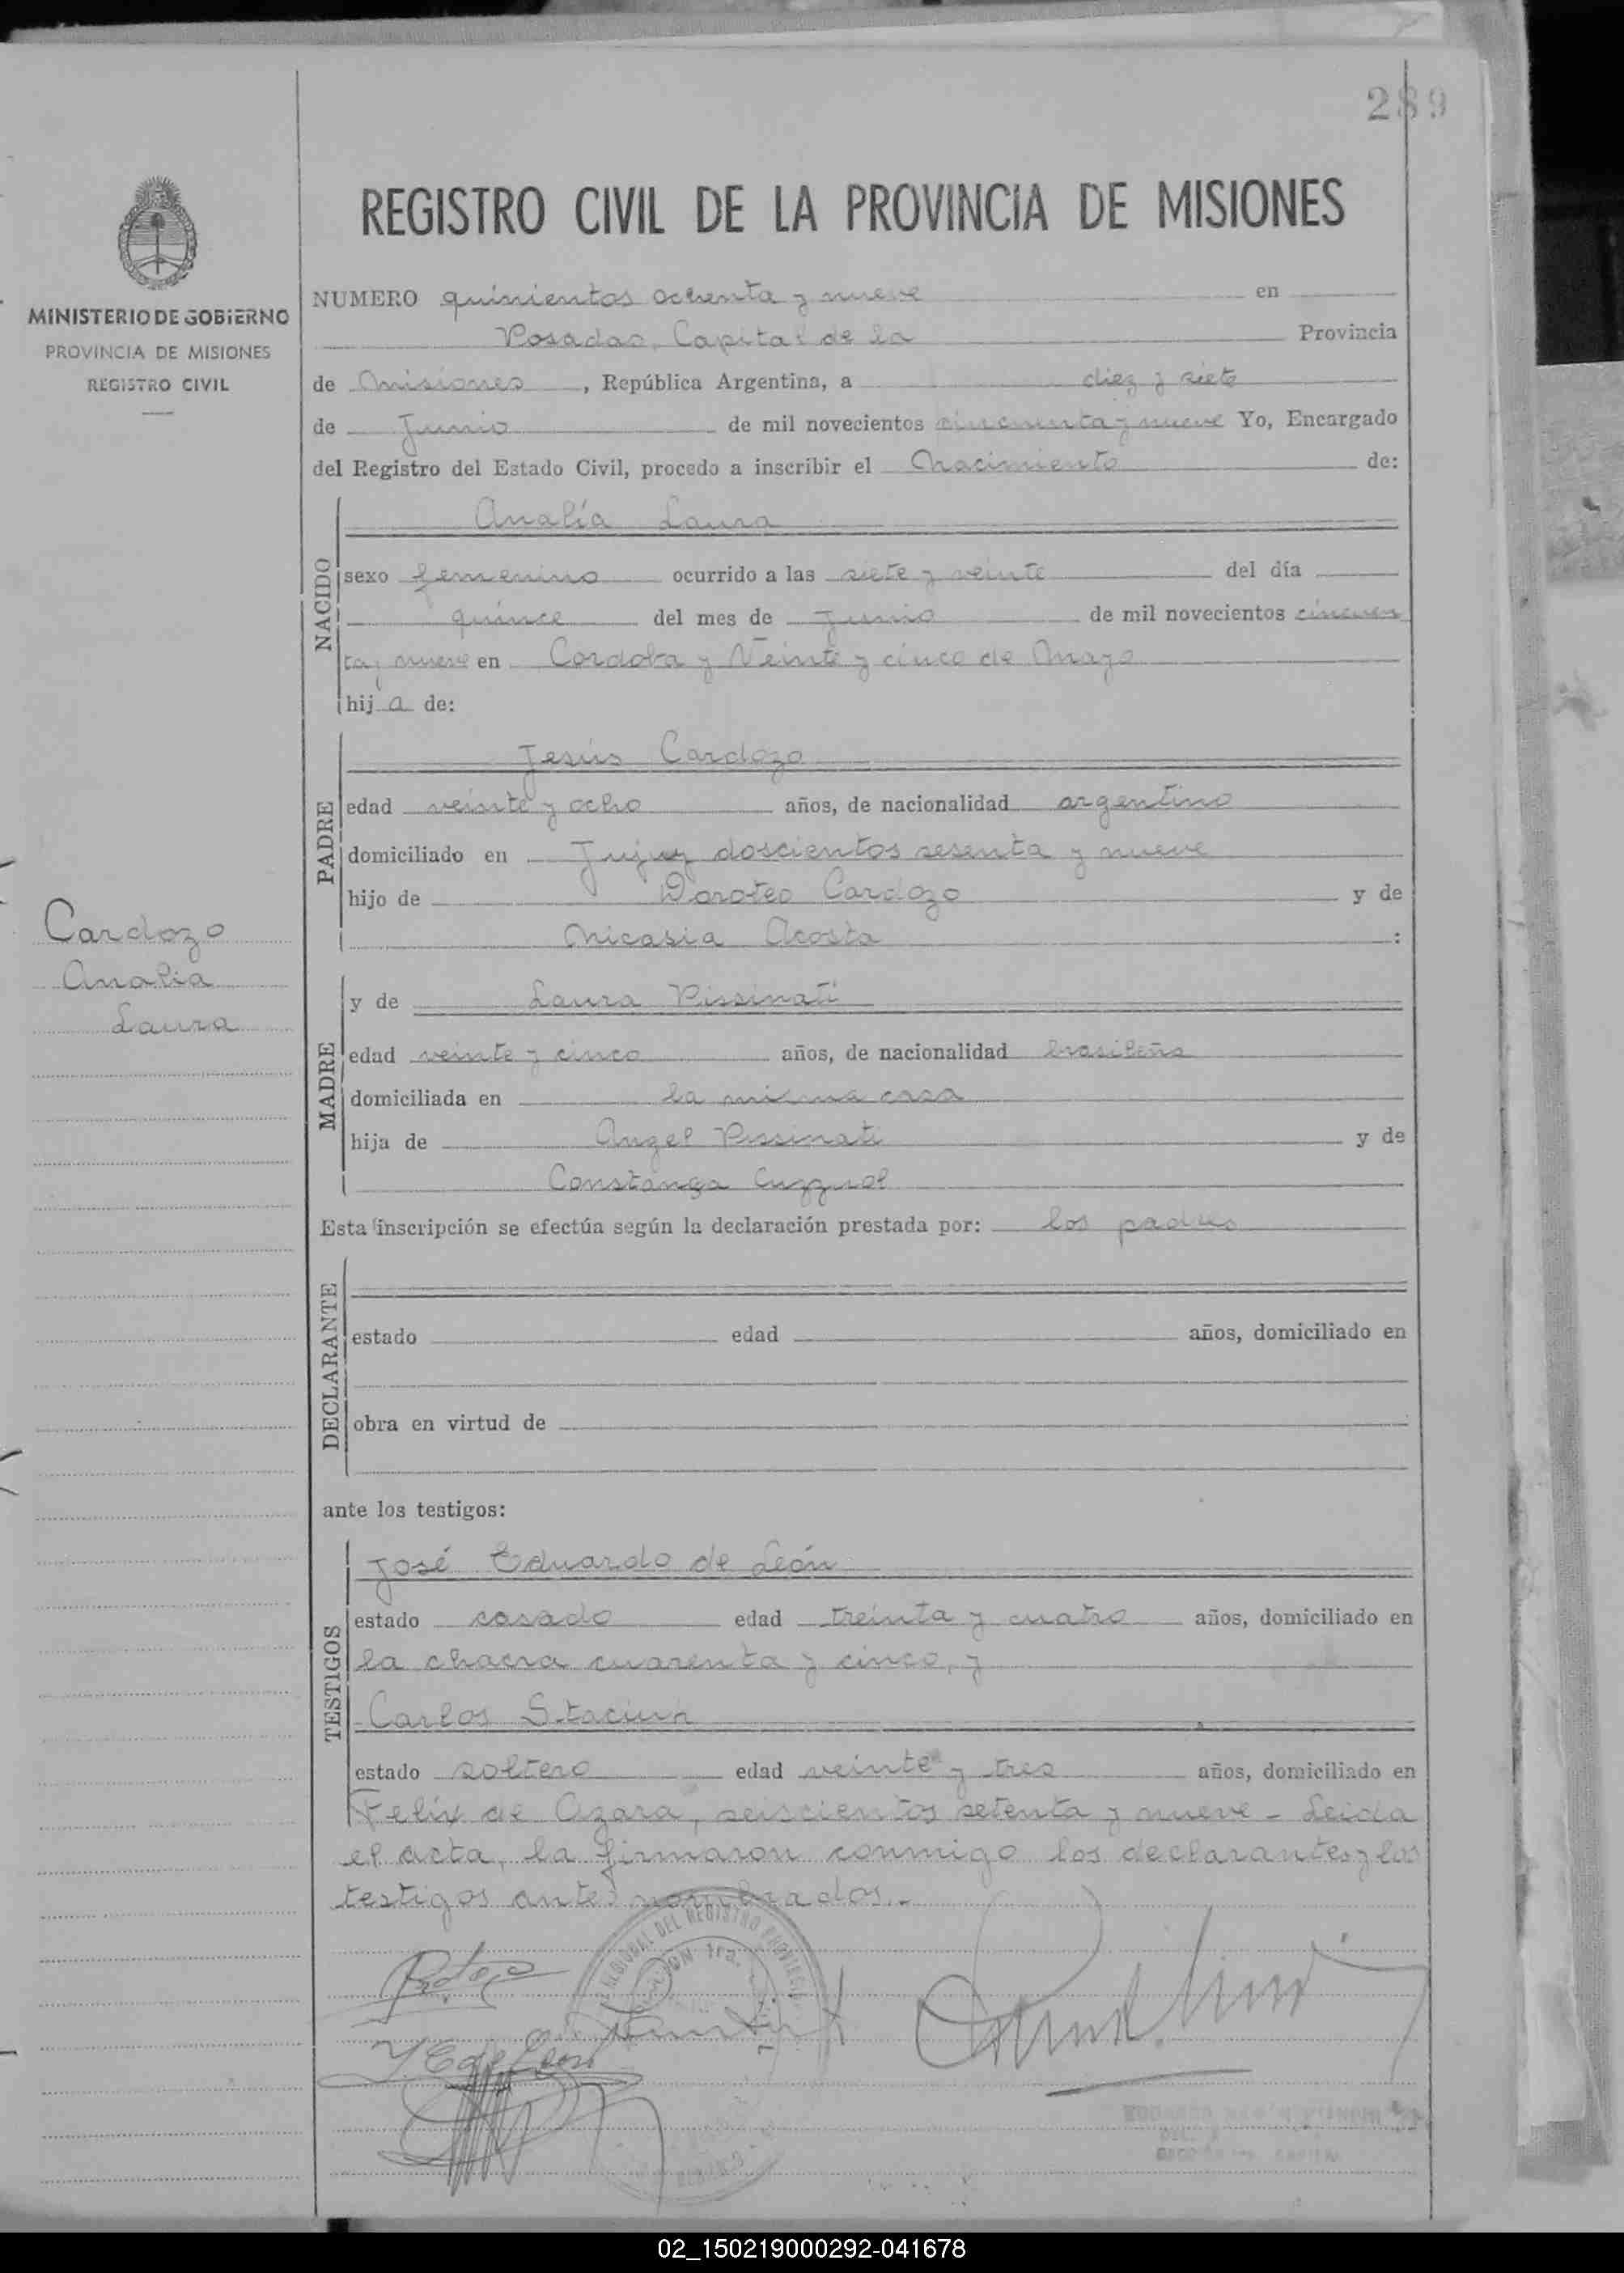 289
REGISTRO CIVIL DE LA PROVINCIA DE MISIONES
MINISTERIO DE GOBIERNO
PROVINCIA DE MISIONES
REGISTRO CIVIL
NUMERO quinientos ochenta y nueve en
Posadas, Capital de la Provincia
de Misiones, República Argentina, a diez y siete
de Junio de mil novecientos cincuenta y nueve Yo, Encargado
del Registro del Estado Civil, procedo a inscribir el Nacimiento de:
NACIDO
Analía Laura
sexo femenino ocurrido a las siete y veinte del día
quince del mes de Junio de mil novecientos cincuen
ta y nueve en Cordoba y Veinte y cinco de Mayo
hija de:
PADRE
Jesús Cardozo
edad veinte y ocho años, de nacionalidad argentino
domiciliado en Jujuy doscientos sesenta y nueve
hijo de Doroteo Cardozo y de
Nicasia Acosta :
Cardozo
Analia
Laura
MADRE
y de Laura Pissinati
edad veinte y cinco años, de nacionalidad brasileña
domiciliada en la misma casa
hija de Angel Pissinati y de
Constanza Cuzzuol
Esta inscripción se efectúa según la declaración prestada por: los padres
DECLARANTE
estado edad años, domiciliado en
obra en virtud de
ante los testigos:
TESTIGOS
José Eduardo de León
estado casado edad treinta y cuatro años, domiciliado en
la chacra cuarenta y cinco, y
Carlos
estado soltero edad veinte y tres años, domiciliado en
Felix de Azara, seiscientos setenta y nueve - Leida
el acta, la firmaron conmigo los declarantes y los
testigos antes nombrados.-
DEL REGISTRO PROVINCIAL
02_150219000292-041678